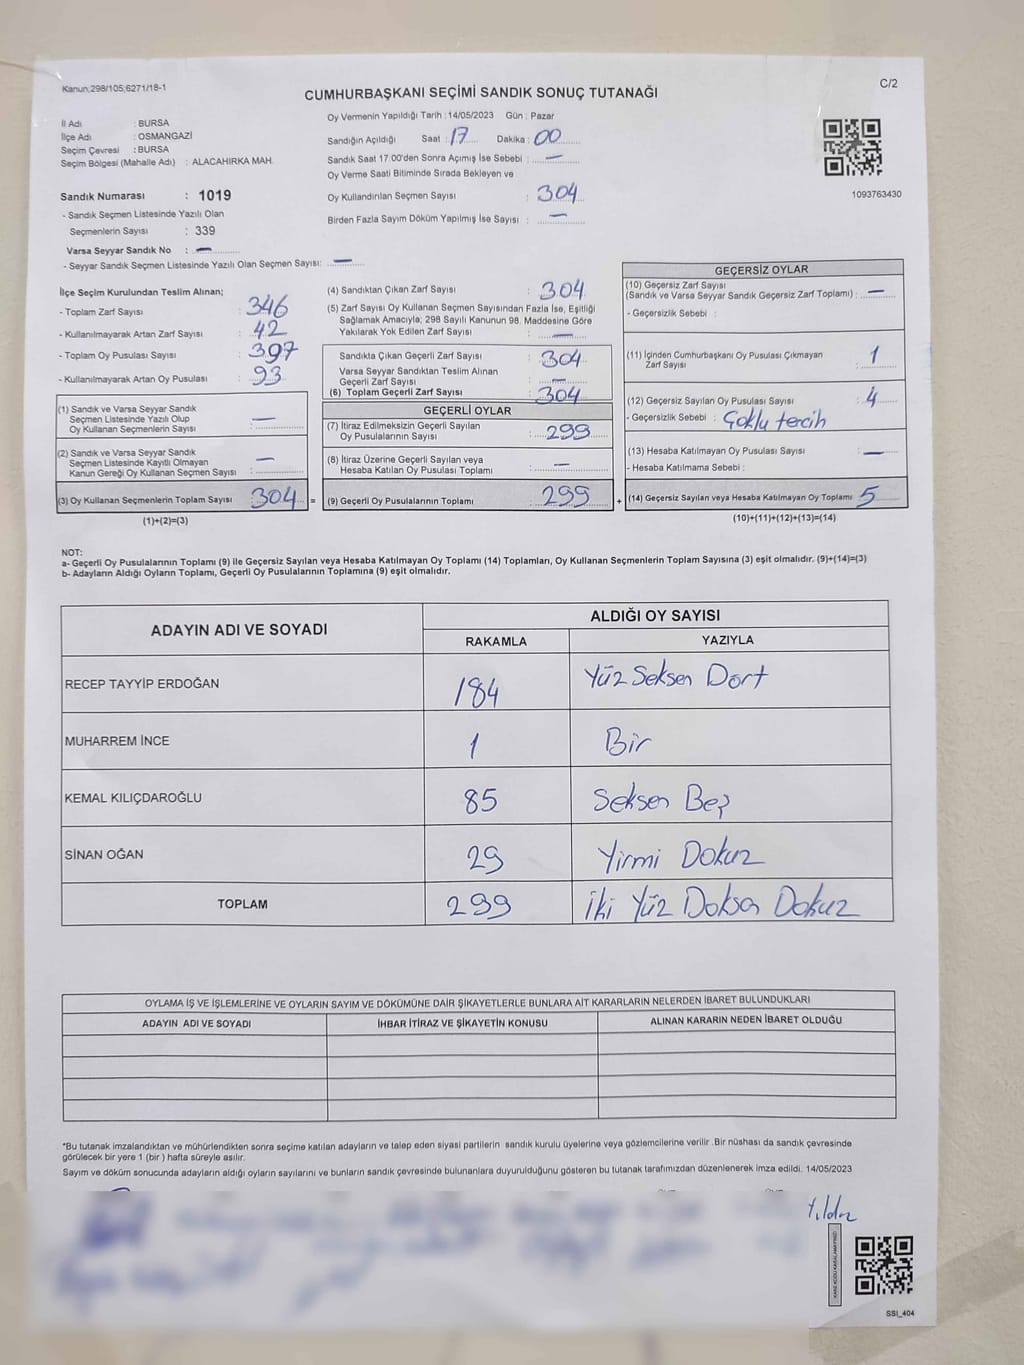 Kanun:298/105,6271/18-1
C/2
CUMHURBAŞKANI SEÇİMİ SANDIK SONUÇ TUTANAĞI
İl Adı : BURSA
İlçe Adı : OSMANGAZİ
Seçim Çevresi : BURSA
Seçim Bölgesi (Mahalle Adı) : ALACAHIRKA MAH.
Sandık Numarası : 1019
- Sandık Seçmen Listesinde Yazılı Olan
Seçmenlerin Sayısı : 339
Varsa Seyyar Sandık No : —
- Seyyar Sandık Seçmen Listesinde Yazılı Olan Seçmen Sayısı: —
Oy Vermenin Yapıldığı Tarih : 14/05/2023 Gün : Pazar
Sandığın Açıldığı Saat : 17 Dakika : 00
Sandık Saat 17:00'den Sonra Açılmış İse Sebebi : —
Oy Verme Saati Bitiminde Sırada Bekleyen ve
Oy Kullandırılan Seçmen Sayısı : 304
Birden Fazla Sayım Döküm Yapılmış İse Sayısı : —
1093763430
İlçe Seçim Kurulundan Teslim Alınan;
- Toplam Zarf Sayısı : 346
- Kullanılmayarak Artan Zarf Sayısı : 42
- Toplam Oy Pusulası Sayısı : 397
- Kullanılmayarak Artan Oy Pusulası : 93
(1) Sandık ve Varsa Seyyar Sandık
Seçmen Listesinde Yazılı Olup
Oy Kullanan Seçmenlerin Sayısı : —
(2) Sandık ve Varsa Seyyar Sandık
Seçmen Listesinde Kayıtlı Olmayan
Kanun Gereği Oy Kullanan Seçmen Sayısı : —
(3) Oy Kullanan Seçmenlerin Toplam Sayısı : 304 =
(1)+(2)=(3)
(4) Sandıktan Çıkan Zarf Sayısı : 304
(5) Zarf Sayısı Oy Kullanan Seçmen Sayısından Fazla İse, Eşitliği
Sağlamak Amacıyla; 298 Sayılı Kanunun 98. Maddesine Göre
Yakılarak Yok Edilen Zarf Sayısı : —
Sandıkta Çıkan Geçerli Zarf Sayısı : 304
Varsa Seyyar Sandıktan Teslim Alınan
Geçerli Zarf Sayısı : —
(6) Toplam Geçerli Zarf Sayısı : 304
GEÇERLİ OYLAR
(7) İtiraz Edilmeksizin Geçerli Sayılan
Oy Pusulalarının Sayısı : 299
(8) İtiraz Üzerine Geçerli Sayılan veya
Hesaba Katılan Oy Pusulası Toplamı : —
(9) Geçerli Oy Pusulalarının Toplamı : 299 +
GEÇERSİZ OYLAR
(10) Geçersiz Zarf Sayısı
(Sandık ve Varsa Seyyar Sandık Geçersiz Zarf Toplamı) : —
- Geçersizlik Sebebi :
(11) İçinden Cumhurbaşkanı Oy Pusulası Çıkmayan
Zarf Sayısı : 1
(12) Geçersiz Sayılan Oy Pusulası Sayısı : 4
- Geçersizlik Sebebi : Çoklu tercih
(13) Hesaba Katılmayan Oy Pusulası Sayısı : —
- Hesaba Katılmama Sebebi :
(14) Geçersiz Sayılan veya Hesaba Katılmayan Oy Toplamı : 5
(10)+(11)+(12)+(13)=(14)
NOT:
a- Geçerli Oy Pusulalarının Toplamı (9) ile Geçersiz Sayılan veya Hesaba Katılmayan Oy Toplamı (14) Toplamları, Oy Kullanan Seçmenlerin Toplam Sayısına (3) eşit olmalıdır. (9)+(14)=(3)
b- Adayların Aldığı Oyların Toplamı, Geçerli Oy Pusulalarının Toplamına (9) eşit olmalıdır.
ADAYIN ADI VE SOYADI
ALDIĞI OY SAYISI
RAKAMLA YAZIYLA
RECEP TAYYİP ERDOĞAN 184 Yüz Seksen Dört
MUHARREM İNCE 1 Bir
KEMAL KILIÇDAROĞLU 85 Seksen Beş
SİNAN OĞAN 29 Yirmi Dokuz
TOPLAM 299 İki Yüz Doksan Dokuz
OYLAMA İŞ VE İŞLEMLERİNE VE OYLARIN SAYIM VE DÖKÜMÜNE DAİR ŞİKAYETLERLE BUNLARA AİT KARARLARIN NELERDEN İBARET BULUNDUKLARI
ADAYIN ADI VE SOYADI İHBAR İTİRAZ VE ŞİKAYETİN KONUSU ALINAN KARARIN NEDEN İBARET OLDUĞU
*Bu tutanak imzalandıktan ve mühürlendikten sonra seçime katılan adayların ve talep eden siyasi partilerin sandık kurulu üyelerine veya gözlemcilerine verilir. Bir nüshası da sandık çevresinde
görülecek bir yere 1 (bir ) hafta süreyle asılır.
Sayım ve döküm sonucunda adayların aldığı oyların sayılarını ve bunların sandık çevresinde bulunanlara duyurulduğunu gösteren bu tutanak tarafımızdan düzenlenerek imza edildi. 14/05/2023
Yıldız
SSI_404